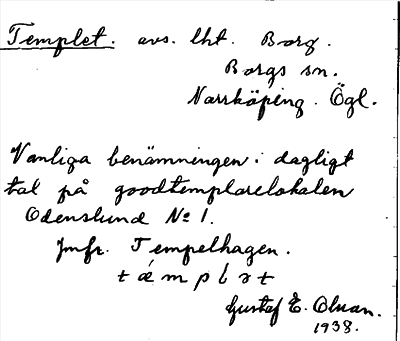 Templet. avs. lht. Borg.
Borgs sn.
Norrköping. Ögl.
Vanliga benämningen i dagligt
tal på goodtemplarelokalen
Odenslund No 1.
Jmfr. Tempelhagen.
Gustaf E. Olsson.
1938.